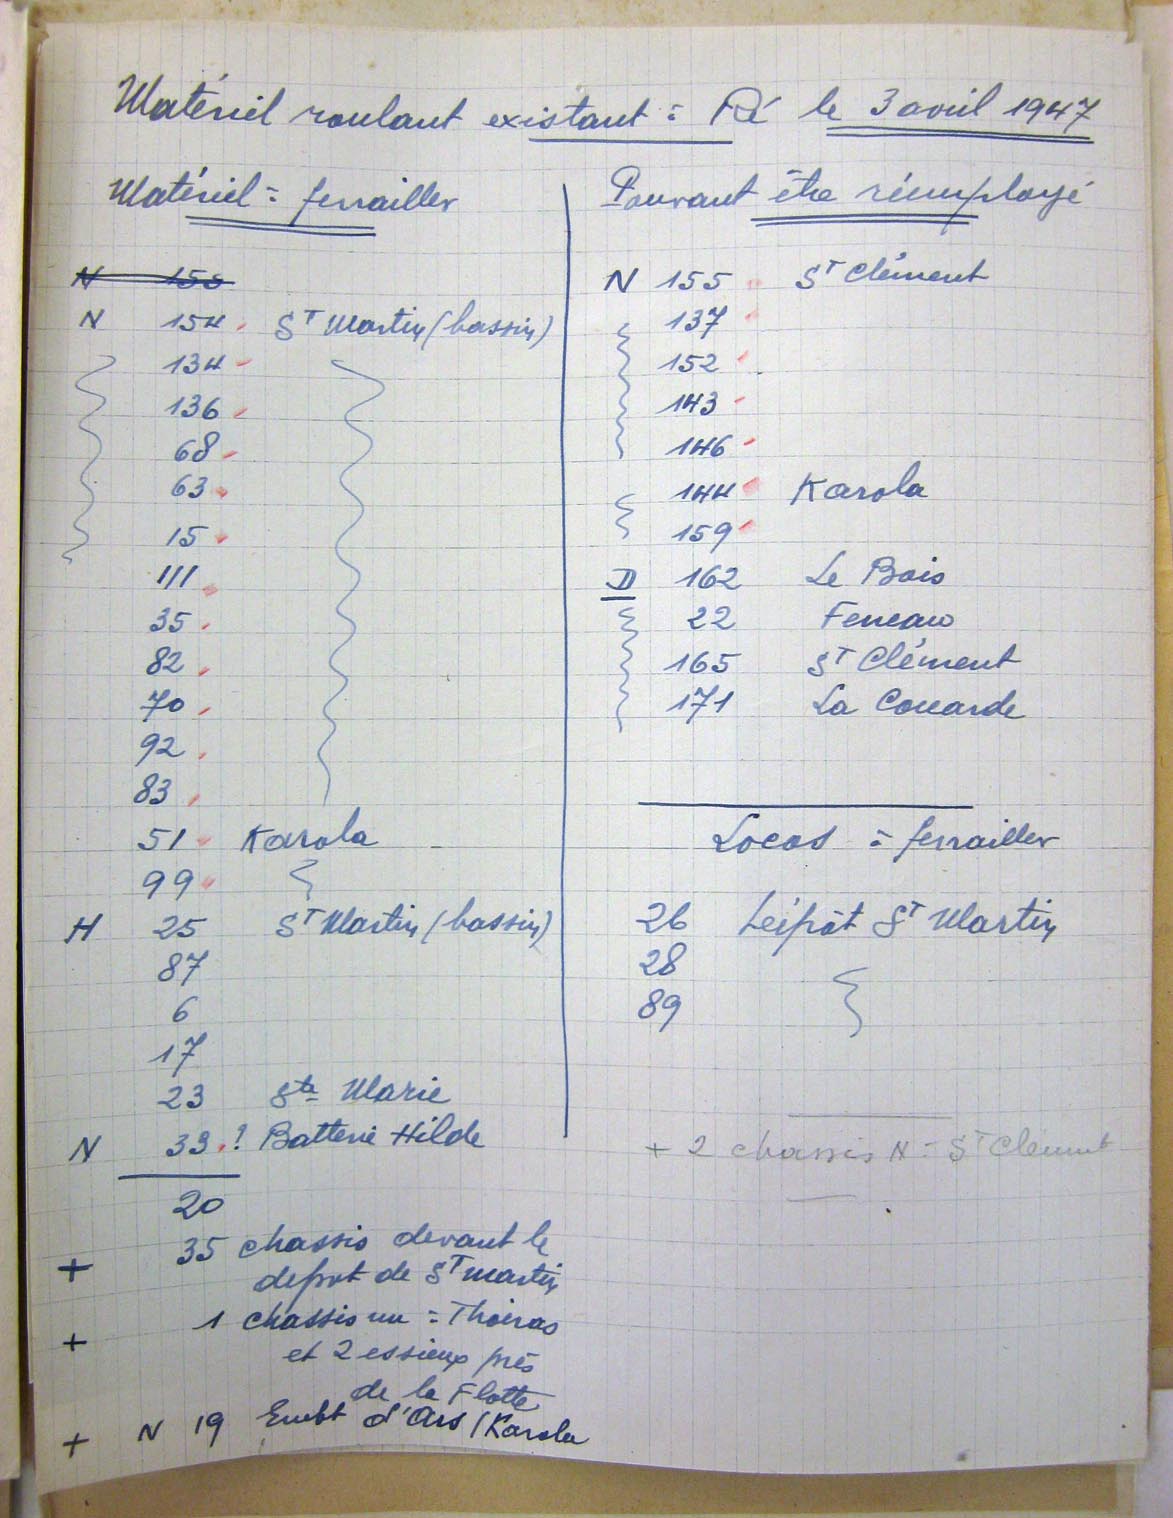 Matériel roulant existant = Ré le 3 avril 1947
Matériel = ferrailler
N 155
N 154 St Martin (bassin)
134
136
68
63
15
111
35
82
70
92
83
51 Karola
99
H 25 St Martin (bassin)
87
6
17
23 Ste Marie
N 33 ? Batterie Hilde
20
+ 35 chassis devant le
depot de St Martin
+ 1 chassis nu = Thoiras
et 2 essieux près
de la Flotte
+ N 19 Embt d'Ars / Karola
Pouvant être réemployé
N 155 St Clément
137
152
143
146
144 Karola
159
D 162 Le Bois
22 Feneau
165 St Clément
171 La Couarde
Locos = ferrailler
26 Dépôt St Martin
28
89
+ 2 chassis N = St Clément